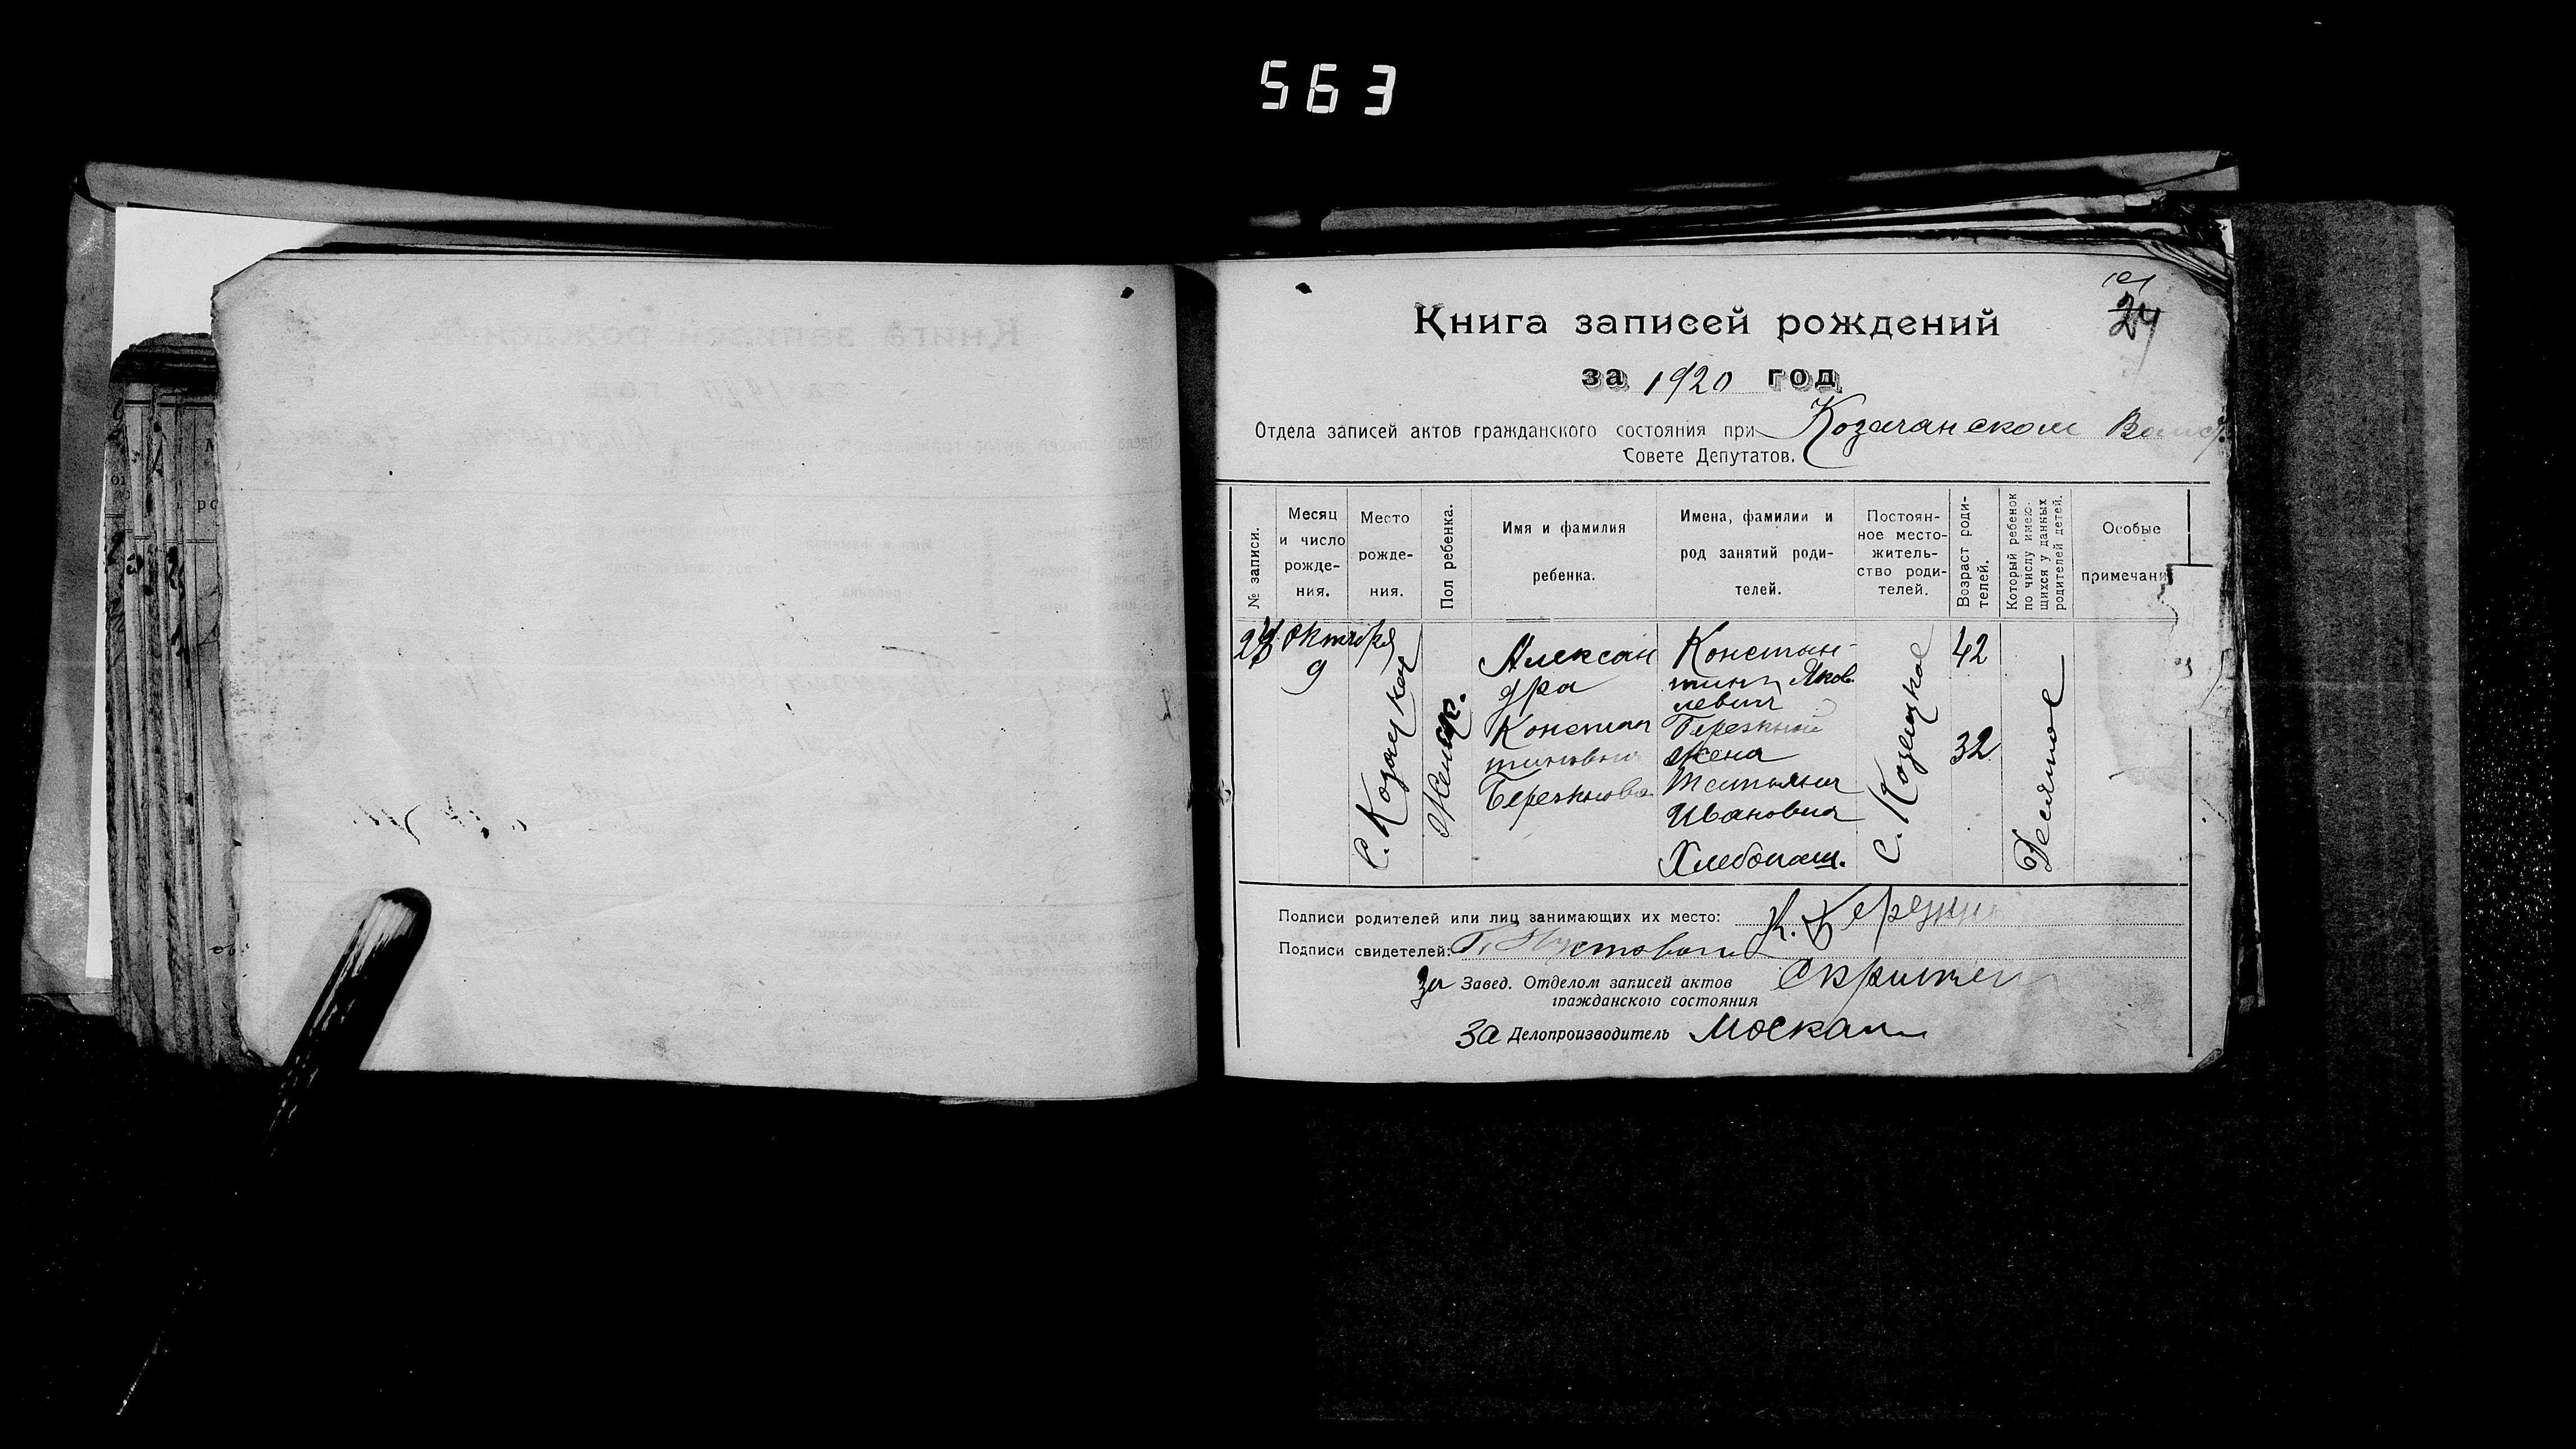 563
24
Книга записей рождений
за 1920 год
Отдела записей актов гражданского состояния при Козачанском
Совете Депутатов.
№ записи.
Месяц и число рожде- ния.
Место рожде- ния.
Пол ребенка.
Имя и фамилия ребенка.
Имена, фамилии и род занятий роди- телей.
Постоян- ное место- житель- ство роди- телей.
Возраст роди- телей.
Который ребенок по числу имею- щихся у данных родителей детей.
Особые примечани
Октября
9
С. Козацкое
Женск.
Алексан
дра
Констан
тиновна
Бережнова
Констан-
тин Яков
левич
Бережный
жена
Татьяна
Ивановна
Хлебопаш.
С. Козацкое
42
32
Десятое
Подписи родителей или лиц занимающих их место: К.
Подписи свидетелей:
За Завед. Отделом записей актов
гражданского состояния
За Делопроизводитель